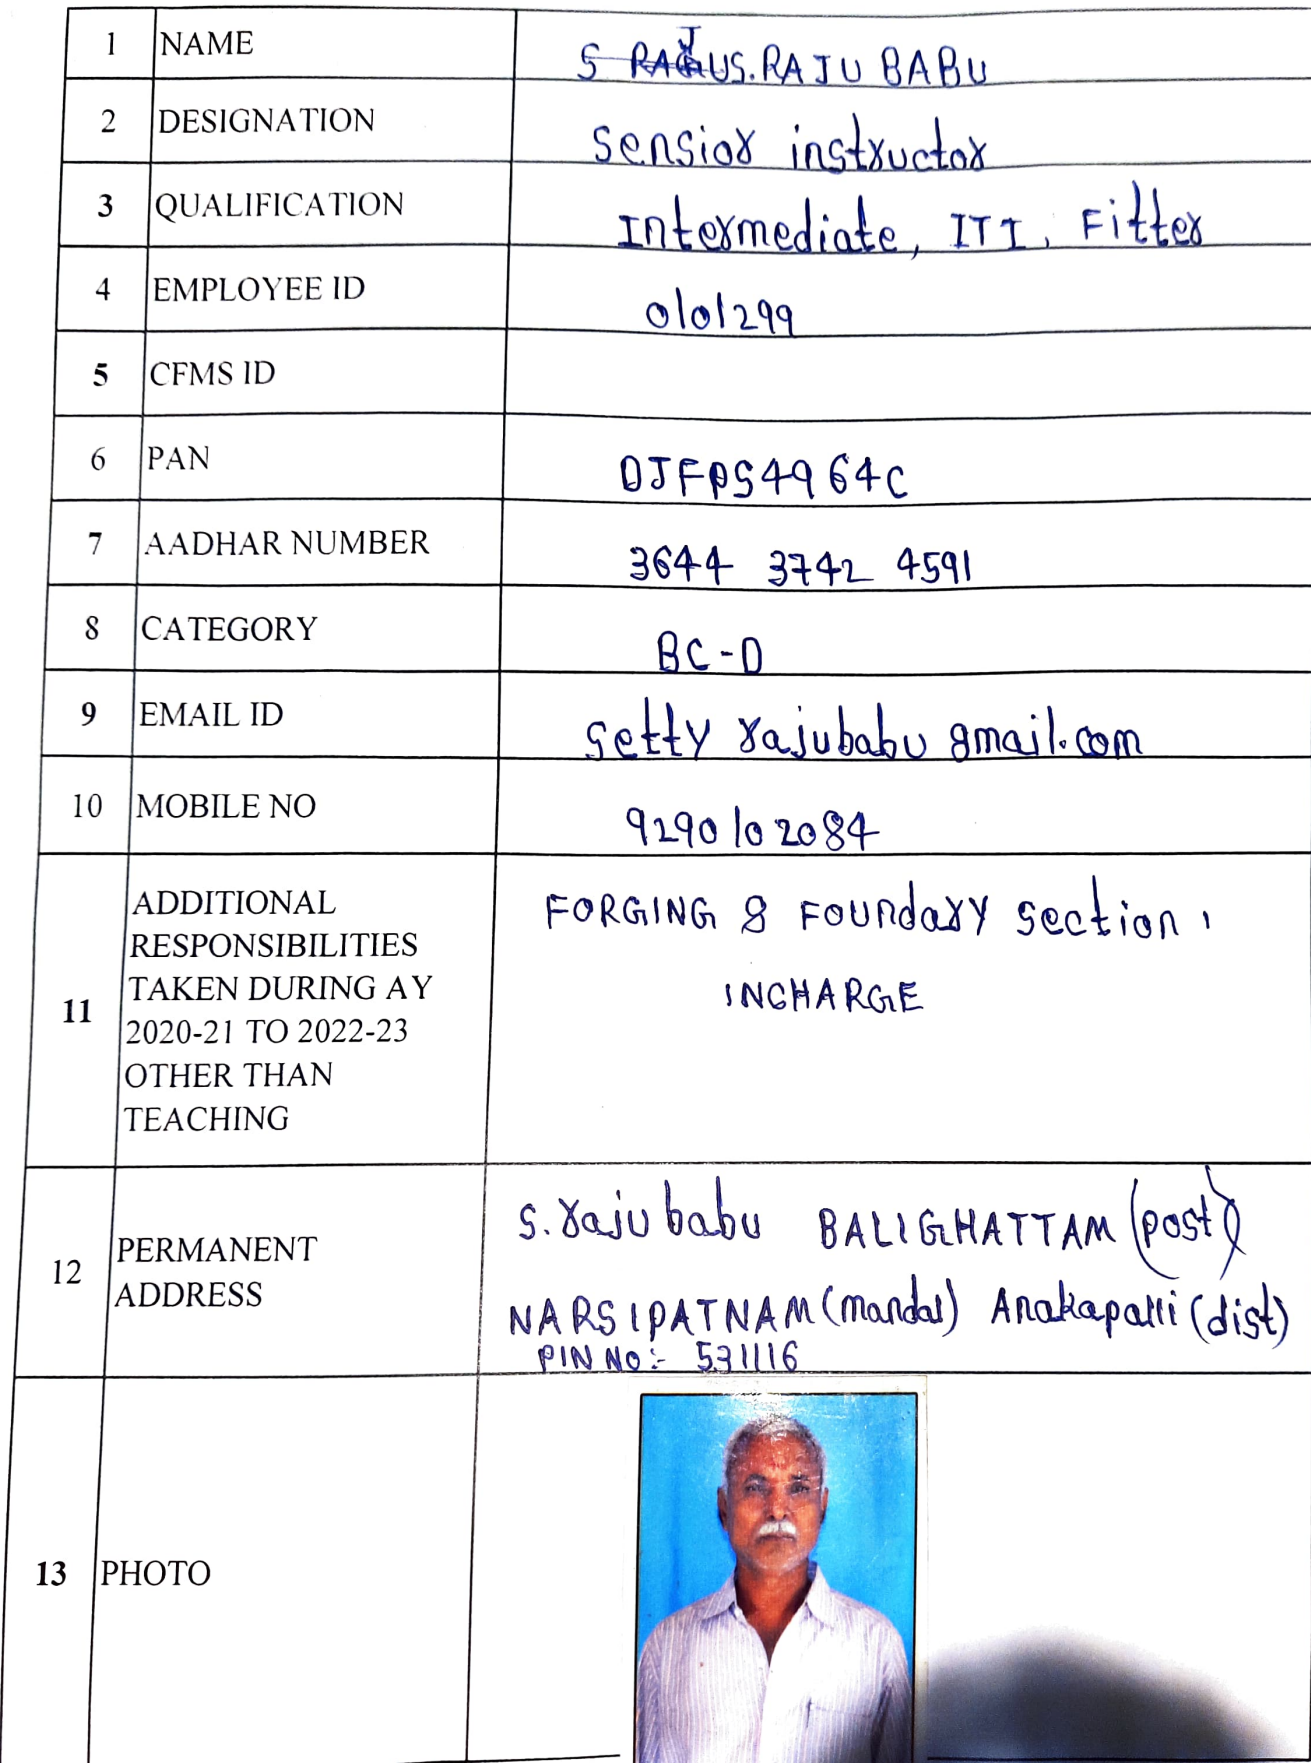 1 NAME S RAJU S. RAJU BABU
2 DESIGNATION Sensior instructor
3 QUALIFICATION Intermediate, ITI, Fitter
4 EMPLOYEE ID 0101299
5 CFMS ID
6 PAN DJFPS4964C
7 AADHAR NUMBER 3644 3742 4591
8 CATEGORY BC-D
9 EMAIL ID setty rajubabu gmail.com
10 MOBILE NO 9290102084
11 ADDITIONAL RESPONSIBILITIES TAKEN DURING AY 2020-21 TO 2022-23 OTHER THAN TEACHING
FORGING & Foundary Section,
INCHARGE
12 PERMANENT ADDRESS
S. raju babu BALIGHATTAM (post)
NARSIPATNAM (mandal) Anakapalli (dist)
PIN NO:- 531116
13 PHOTO